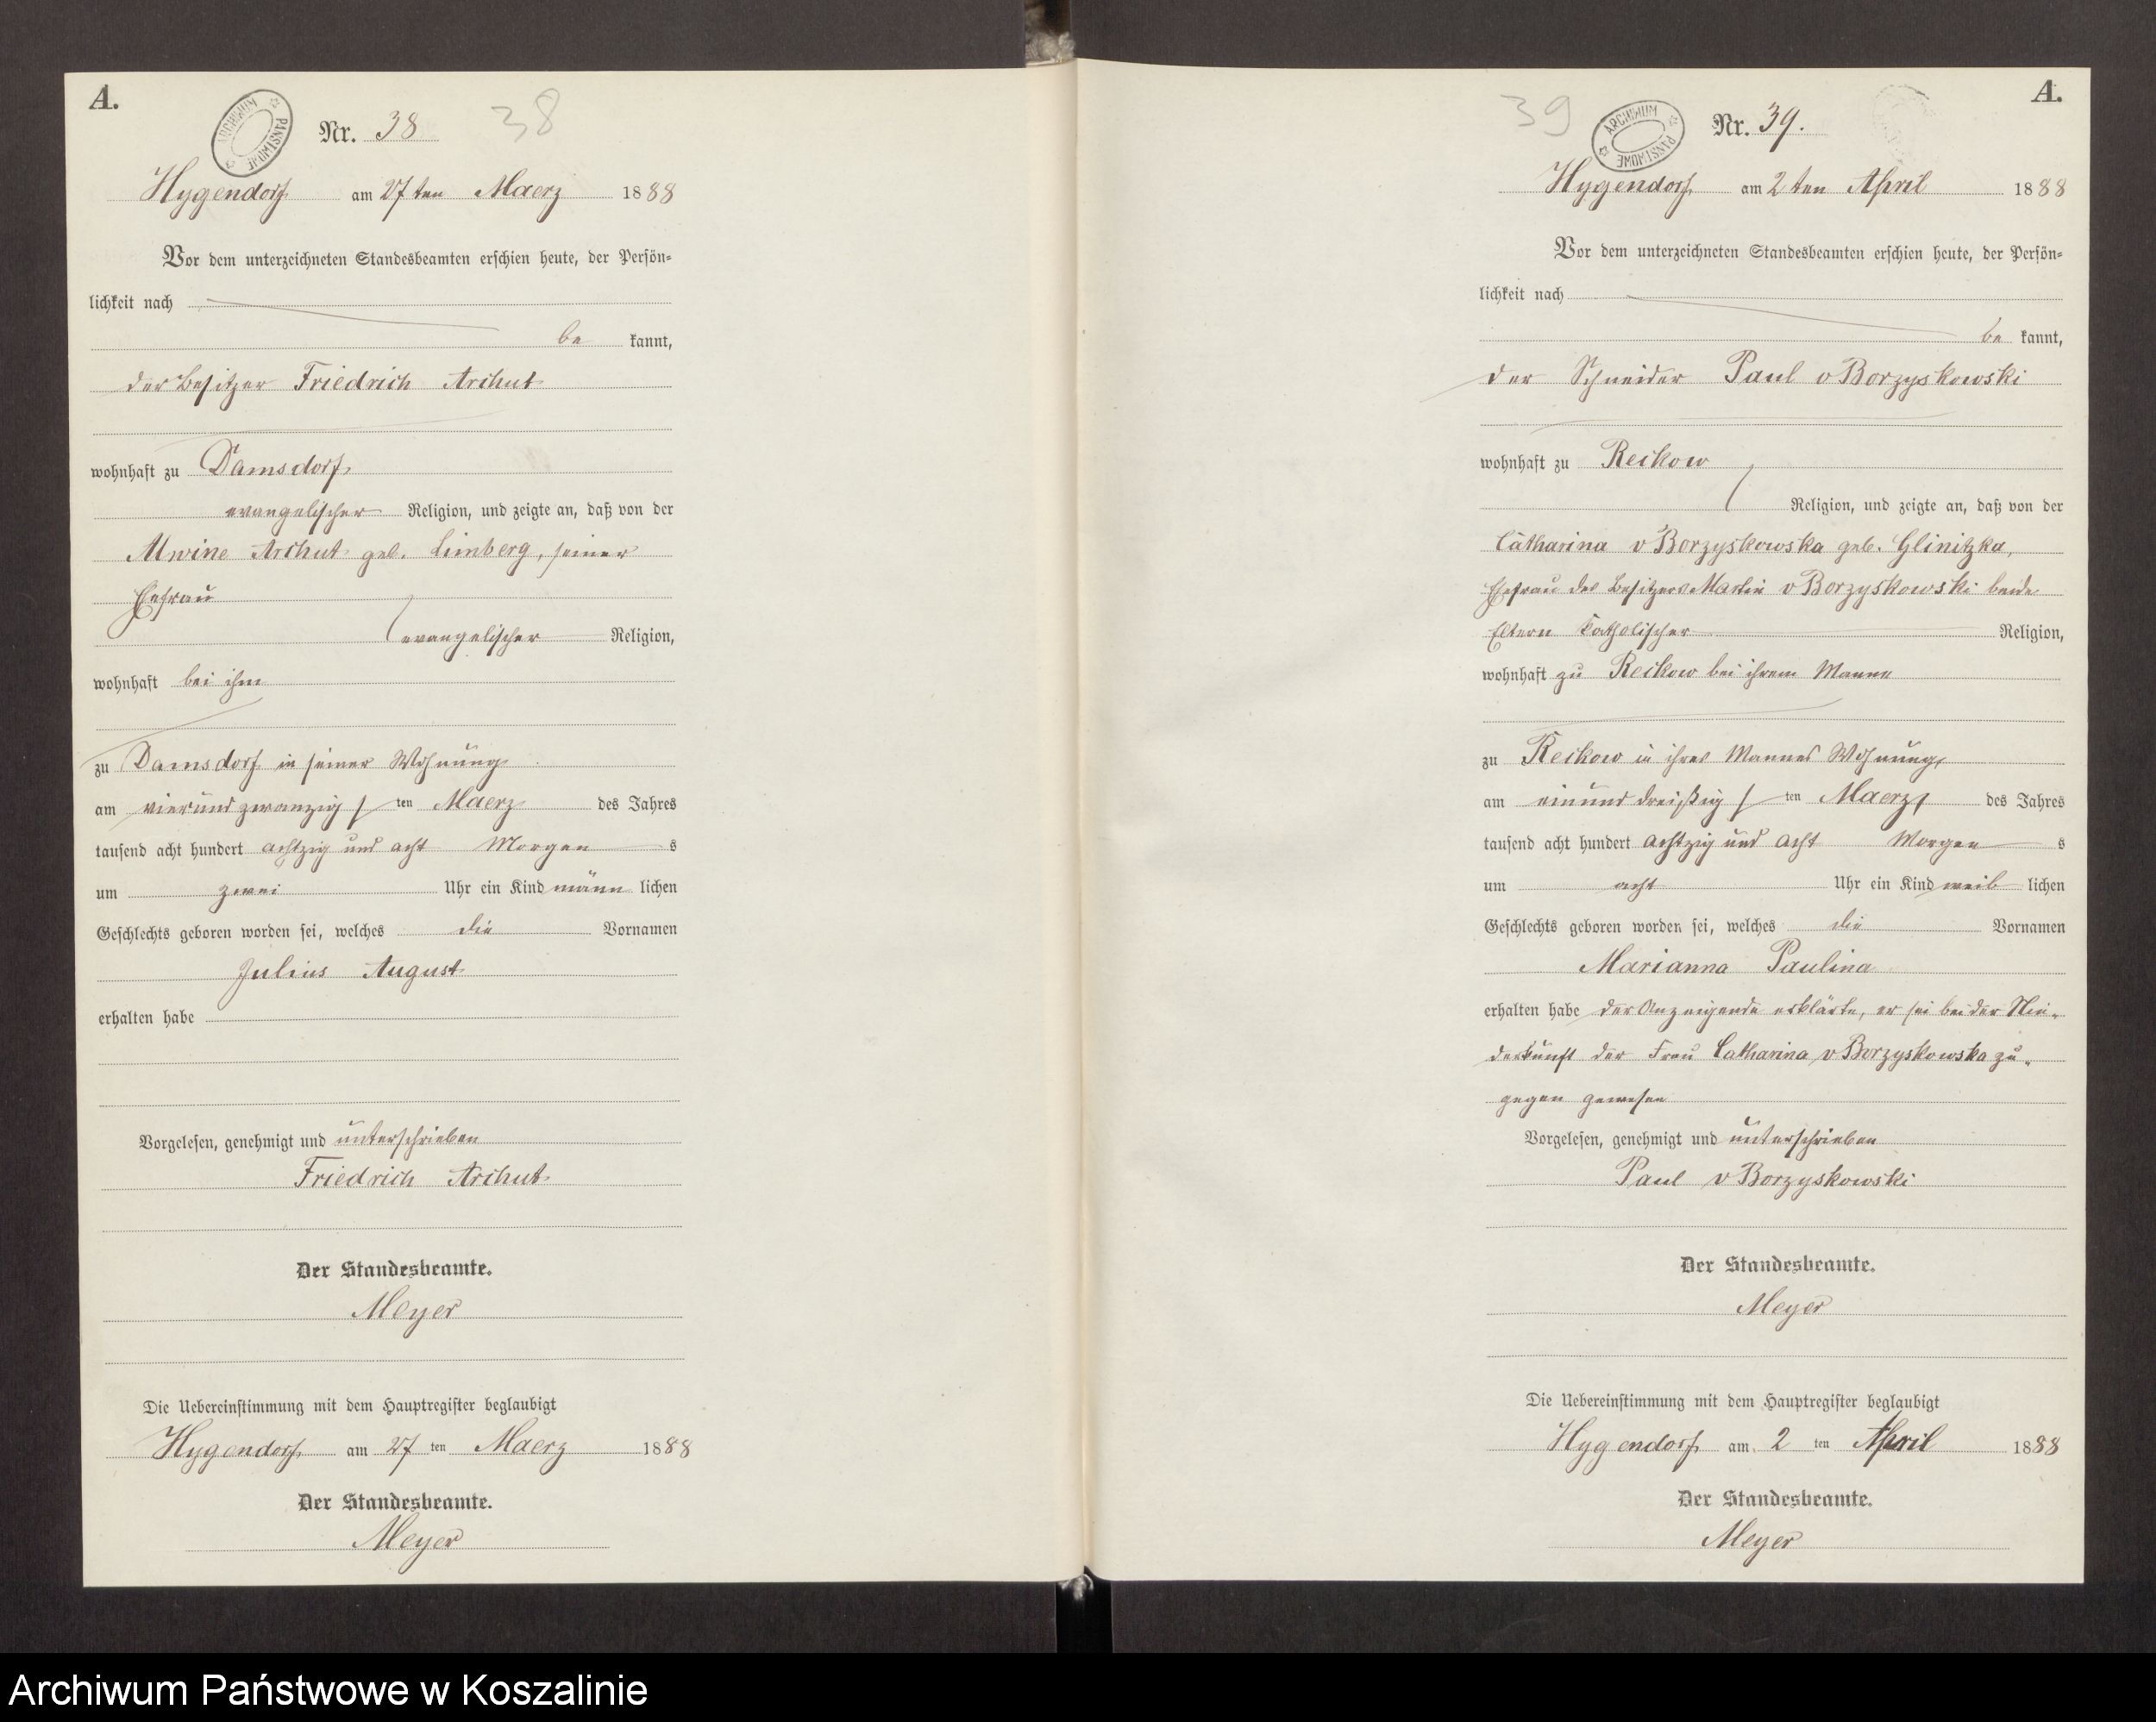 A.
ARCHIWUM PAŃSTWOWE
Nr. 38 38
Hygendorf am 27ten Maerz 1888
Vor dem unterzeichneten Standesbeamten erschien heute, der Persön-
lichkeit nach
be kannt,
der Besitzer Friedrich Archut
wohnhaft zu Damsdorf
evangelischer Religion, und zeigte an, daß von der
Alwine Archut geb. Limberg, seiner
Ehefrau
evangelischer Religion,
wohnhaft bei ihm
zu Damsdorf in seiner Wohnung
am vierundzwanzig ten Maerz des Jahres
tausend acht hundert achtzig und acht Morgen s
um zwei Uhr ein Kind männ lichen
Geschlechts geboren worden sei, welches die Vornamen
Julius August
erhalten habe
Vorgelesen, genehmigt und unterschrieben
Friedrich Archut
Der Standesbeamte.
Meyer
Die Uebereinstimmung mit dem Hauptregister beglaubigt
Hygendorf am 27 ten Maerz 1888
Der Standesbeamte.
Meyer
A.
39 ARCHIWUM PAŃSTWOWE
Nr. 39.
Hygendorf am 2ten April 1888
Vor dem unterzeichneten Standesbeamten erschien heute, der Persön-
lichkeit nach
be kannt,
der Schneider Paul v Borzyskowski
wohnhaft zu Reckow
Religion, und zeigte an, daß von der
Catharina v Borzyskowska geb. Glinitzka,
Ehefrau des Besitzers Martin v Borzyskowski beide
Eltern katholischer Religion,
wohnhaft zu Reckow bei ihrem Manne
zu Reckow in ihres Mannes Wohnung
am einund dreißig ten Maerz des Jahres
tausend acht hundert achtzig und acht Morgen s
um acht Uhr ein Kind weib lichen
Geschlechts geboren worden sei, welches die Vornamen
Marianna Paulina
erhalten habe der Anzeigende erklärte, er sei bei der Nie-
derkunft der Frau Catharina v Borzyskowska zu-
gegen gewesen
Vorgelesen, genehmigt und unterschrieben
Paul v Borzyskowski
Der Standesbeamte.
Meyer
Die Uebereinstimmung mit dem Hauptregister beglaubigt
Hygendorf am 2 ten April 1888
Der Standesbeamte.
Meyer
Archiwum Państwowe w Koszalinie